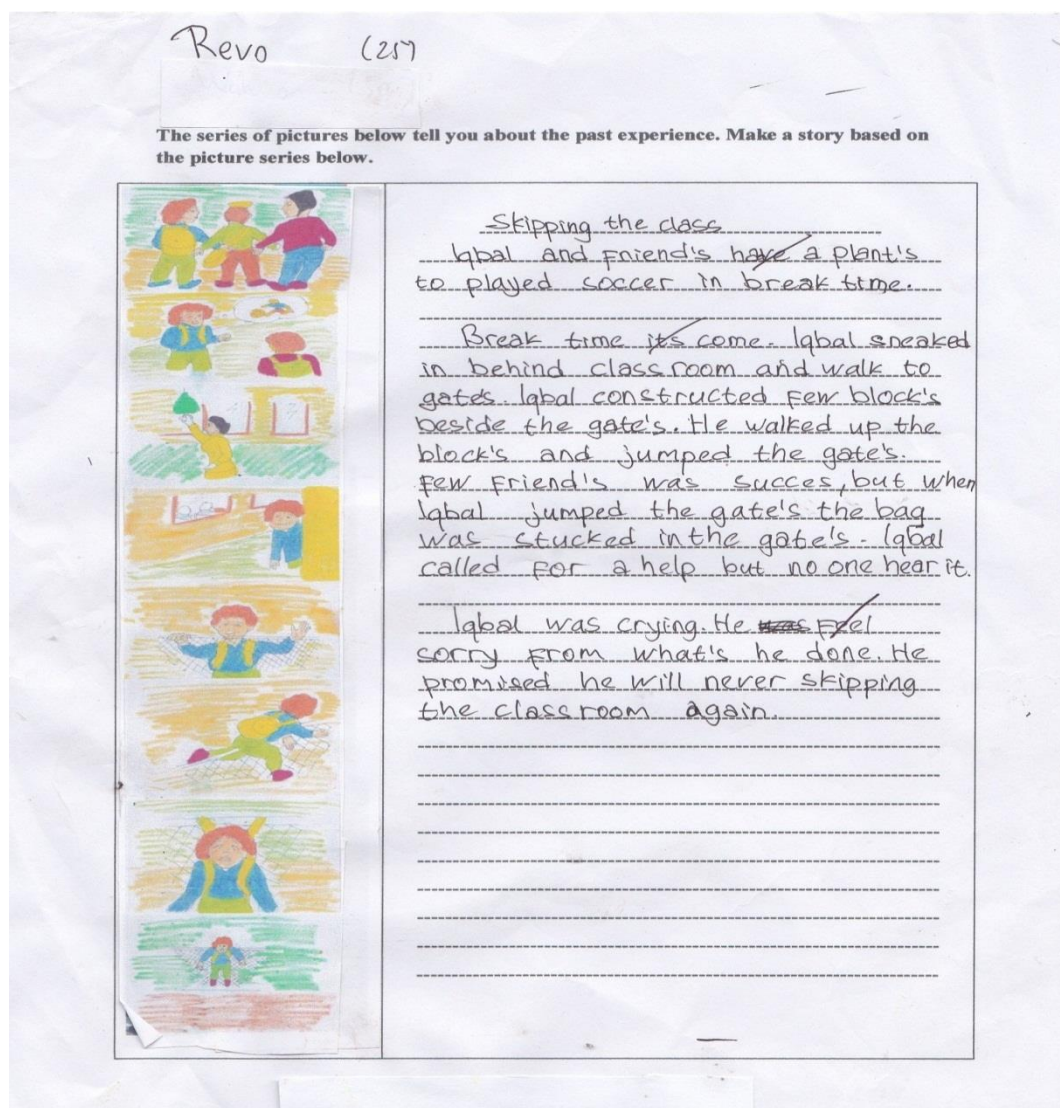 Revo (25)
The series of pictures below tell you about the past experience. Make a story based on
the picture series below.
Skipping the class
Iqbal and Friend's have a plant's
to played soccer in break time.
Break time its come. Iqbal sneaked
in behind class room and walk to
gates. Iqbal constructed Few block's
beside the gate's. He walked up the
block's and jumped the gate's.
Few Friend's was succes, but when
Iqbal jumped the gate's the bag
was stucked in the gate's. Iqbal
called For a help but no one hear it.
Iqbal was crying. He was Feel
sorry From what's he done. He
promised he will never skipping
the class room again.